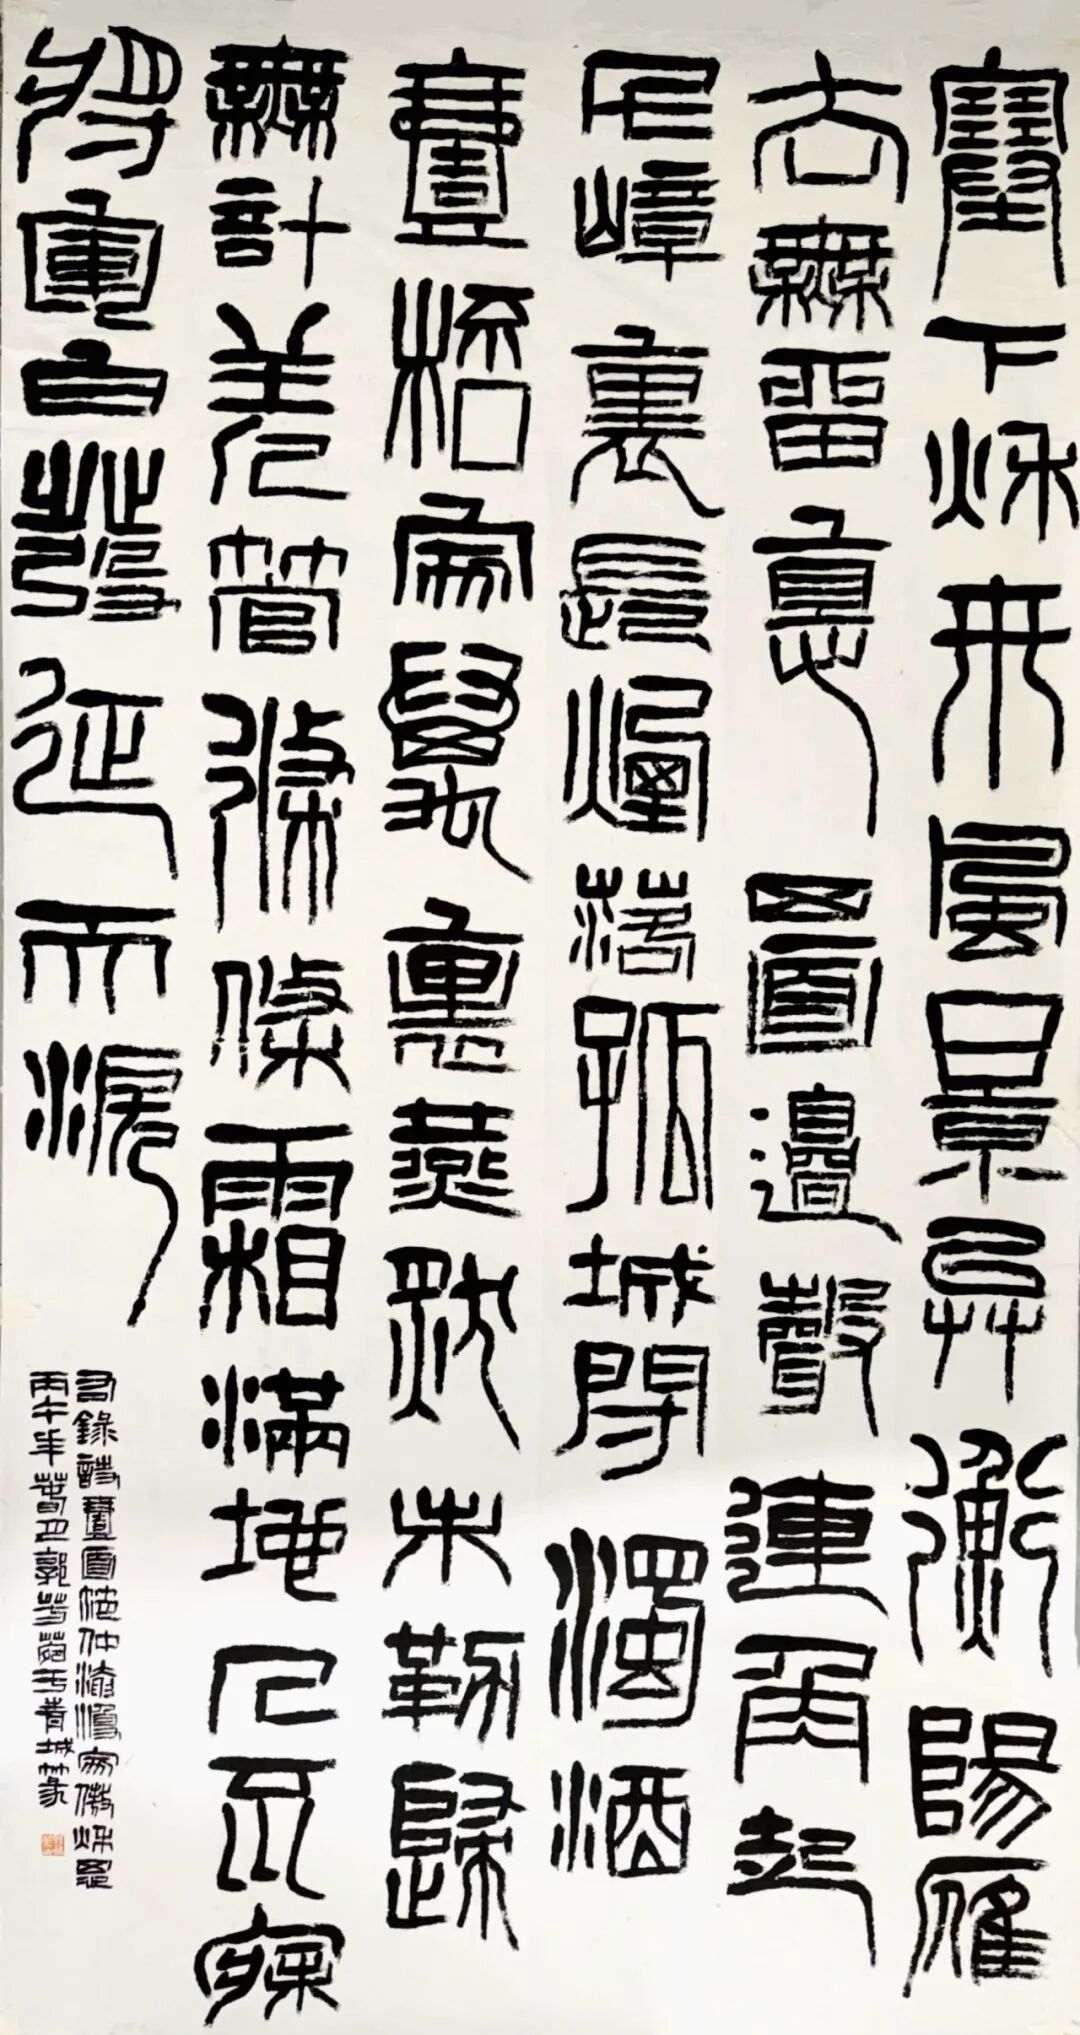 塞下秋來風景異衡陽雁
去無留意四面邊聲連角起
千嶂裏長煙落孤城閉濁酒
壹桮家萬裏燕然未勒歸
無計羌管悠悠霜滿地人不寐
將軍白髮征夫淚
右錄詩壹首范仲淹漁家傲秋思
丙午年春郭芳於青城篆